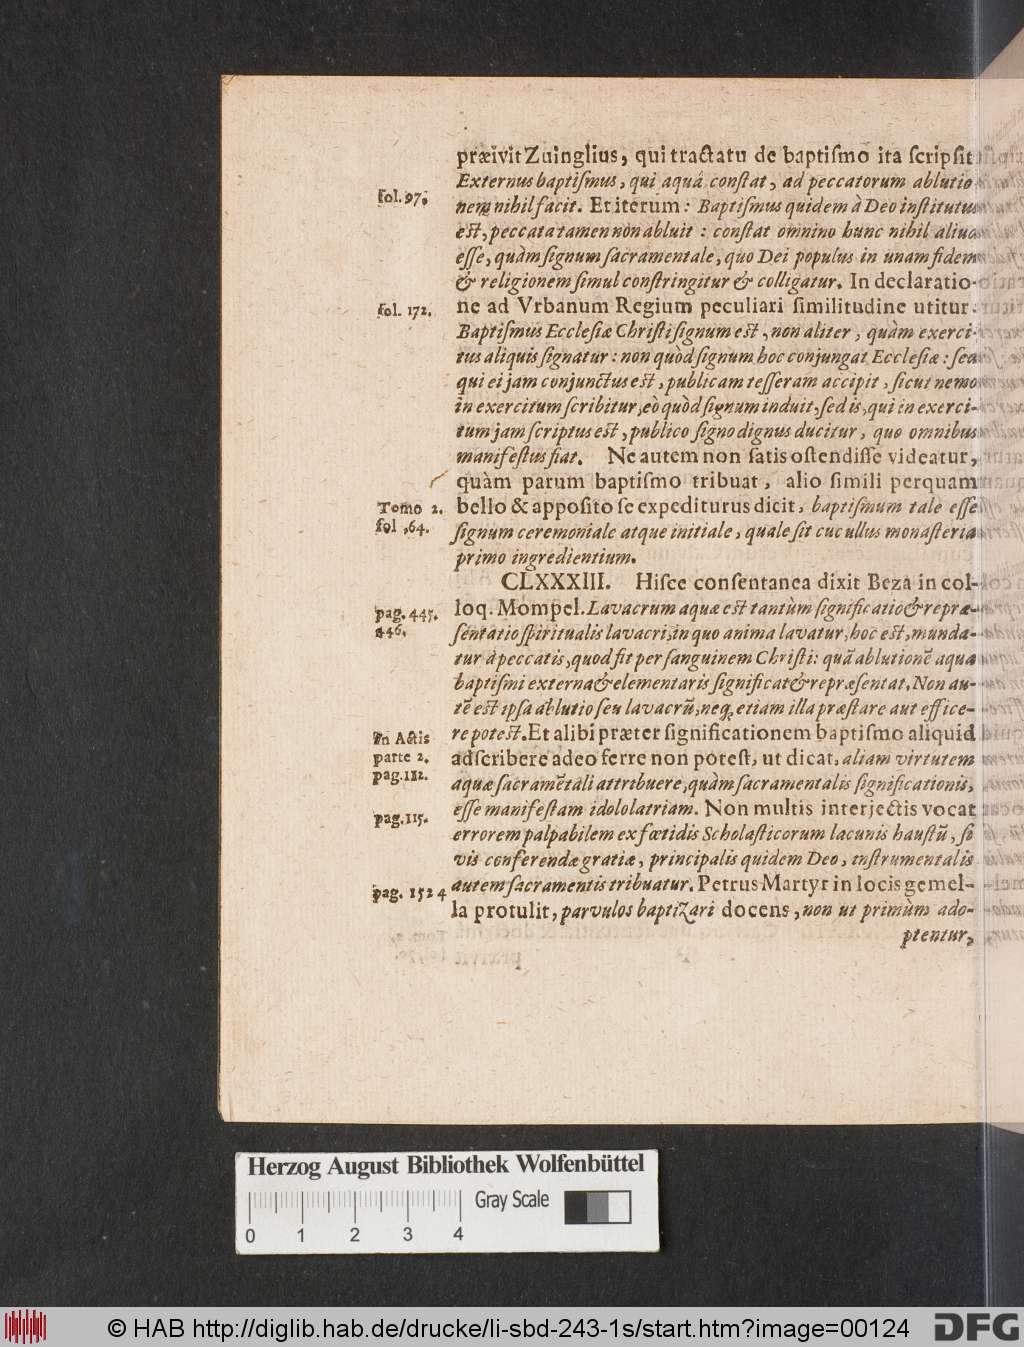 præivit Zuinglius, qui tractatu de baptiſmo ita ſcripſit
Externus baptiſmus, qui aquâ conſtat, ad peccatorum ablutio
fol. 97.
nem nihil facit. Et iterum: Baptiſmus quidem à Deo inſtitutus
eſt, peccata tamen non abluit: conſtat omnino hunc nihil aliud
eſſe, quàm ſignum ſacramentale, quo Dei populus in unam fidem
& religionem ſimul conſtringitur & colligatur. In declaratio-
fol. 172.
ne ad Vrbanum Regium peculiari ſimilitudine utitur.
Baptiſmus Eccleſiæ Chriſti ſignum eſt, non aliter, quàm exerci-
tus aliquis ſignatur: non quòd ſignum hoc conjungat Eccleſiæ: ſed
qui ei jam conjunctus eſt, publicam teſſeram accipit, ſicut nemo
in exercitum ſcribitur, eò quòd ſignum induit, ſed is, qui in exerci-
tum jam ſcriptus eſt, publico ſigno dignus ducitur, quo omnibus
manifeſtus fiat. Ne autem non ſatis oſtendiſſe videatur,
quàm parum baptiſmo tribuat, alio ſimili perquam
Tomo 2.
fol. 64.
bello & appoſito ſe expediturus dicit, baptiſmum tale eſſe
ſignum ceremoniale atque initiale, quale ſit cucullus monaſteria
primo ingredientium.
CLXXXIII. Hiſce conſentanea dixit Beza in col-
pag. 445.
446.
loq. Mompel. Lavacrum aquæ eſt tantùm ſignificatio & repræ-
ſentatio ſpiritualis lavacri, in quo anima lavatur, hoc eſt, munda-
tur à peccatis, quod fit per ſanguinem Chriſti: quã ablutionẽ aqua
baptiſmi externa & elementaris ſignificat & repræſentat. Non au-
tẽ eſt ipſa ablutio ſeu lavacrũ, neq; etiam illa præſtare aut efficere-
In Actis
parte 2.
pag. 112.
re poteſt. Et alibi præter ſignificationem baptiſmo aliquid
adſcribere adeo ferre non poteſt, ut dicat, aliam virtutem
aquæ ſacramẽtali attribuere, quàm ſacramentalis ſignificationis,
pag. 115.
eſſe manifeſtam idololatriam. Non multis interjectis vocat
errorem palpabilem ex fœtidis Scholaſticorum lacunis hauſtũ, ſi
vis conferendæ gratiæ, principalis quidem Deo, inſtrumentalis
pag. 1524
autem ſacramentis tribuatur. Petrus Martyr in locis gemel-
la protulit, parvulos baptizari docens, non ut primùm ado-
ptentur,
Herzog August Bibliothek Wolfenbüttel
Gray Scale
0 1 2 3 4
© HAB http://diglib.hab.de/drucke/li-sbd-243-1s/start.htm?image=00124
DFG